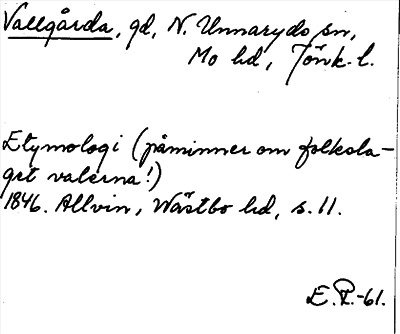 Vallgårda, gd, N. Unnaryds sn,
Mo hd, Jönk. l.
Etymologi (påminner om folksla-
get valerna!)
1846. Allvin, Wästbo hd, s. 11.
E.P.-61.